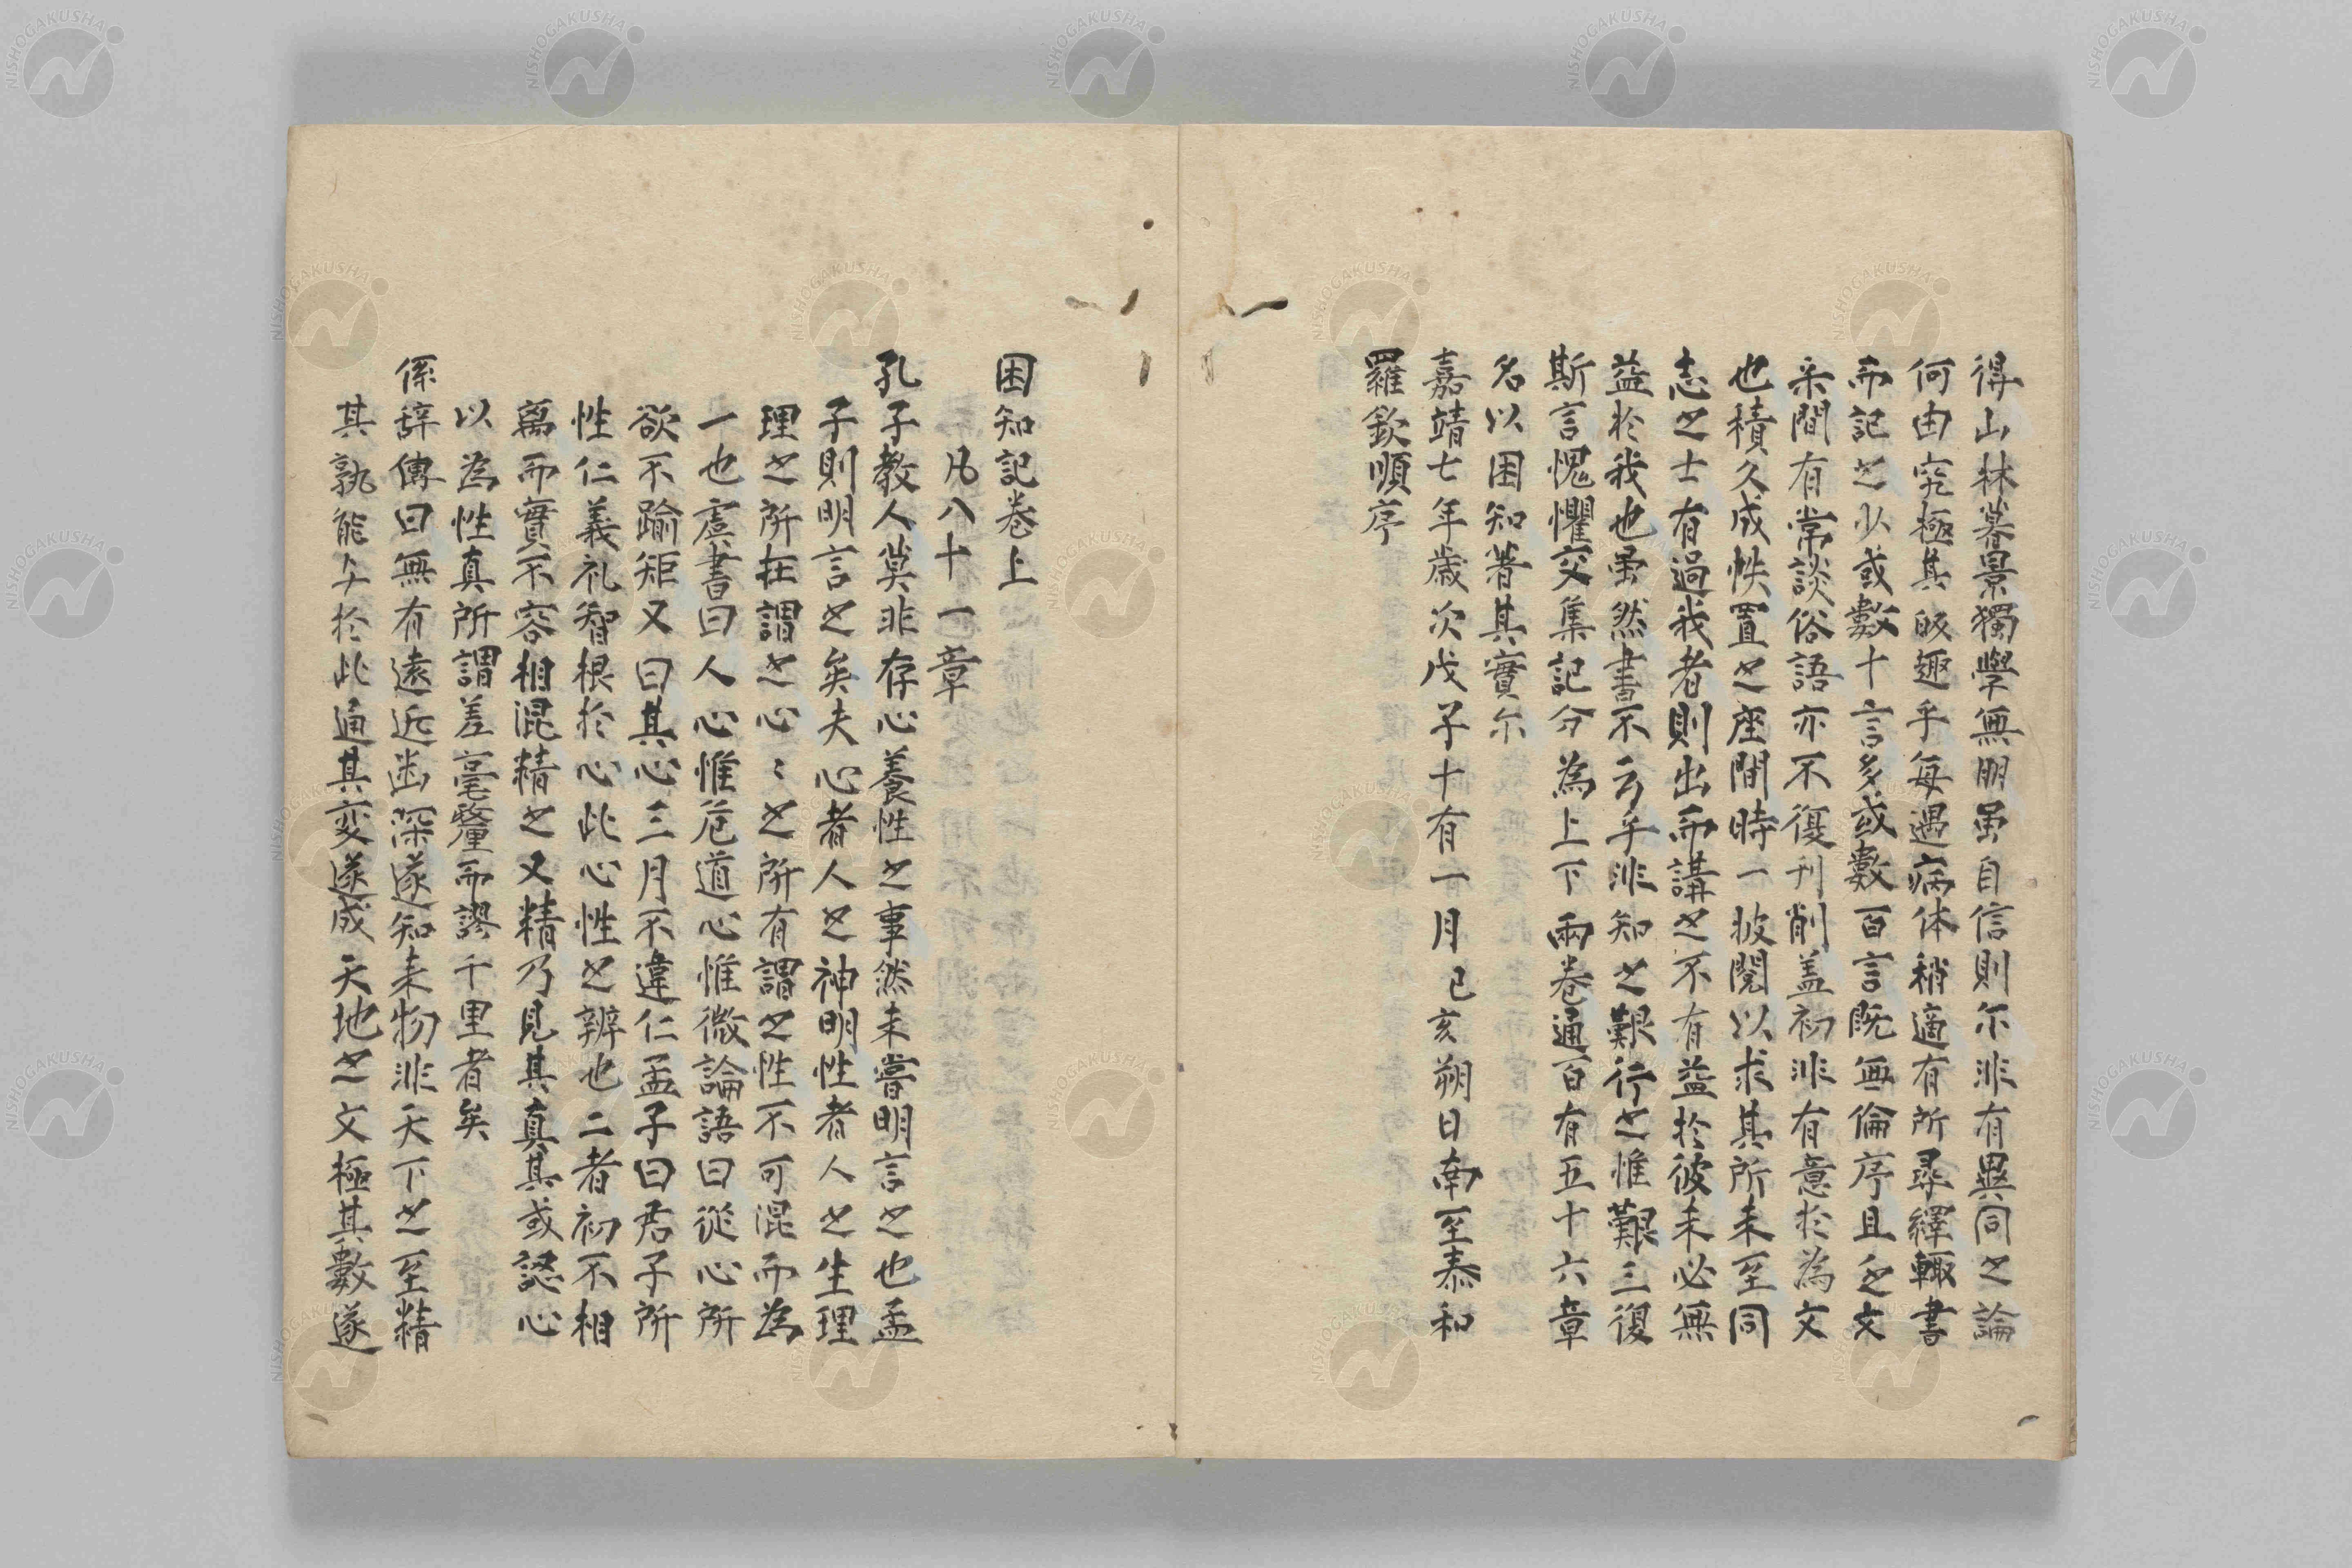 得山林暮景獨學無朋虽自信則尓非有異同之論
何由究極其皈趣乎每遇病体稍適有所尋繹輒書
而記之少或數十言多或數百言既無倫序且乏文
采間有常談俗語亦不復刊削盖初非有意於為文
也積久成帙置之座間時一披閱以求其所未至同
志之士有過我者則出而講之不有益於彼未必無
益於我也虽然書不云乎非知之艱行之惟艱三復
斯言愧懼交集記分為上下兩卷通百有五十六章
名以困知著其實尓
嘉靖七年歲次戊子十有一月己亥朔日南至泰和
羅欽順序
困知記卷上
凡八十一章
孔子教人莫非存心養性之事然未嘗明言之也孟
子則明言之矣夫心者人之神明性者人之生理
理之所在謂之心〻之所有謂之性不可混而為
一也虞書曰人心惟危道心惟微論語曰從心所
欲不踰矩又曰其心三月不違仁孟子曰君子所
性仁義礼智根於心此心性之辨也二者初不相
离而實不容相混精之又精乃見其真其或認心
以為性真所謂差毫釐而謬千里者矣
係辞傳曰無有遠近幽深遂知来物非天下之至精
其孰能与於此通其変遂成天地之文極其數遂
NISHOGAKUSHA